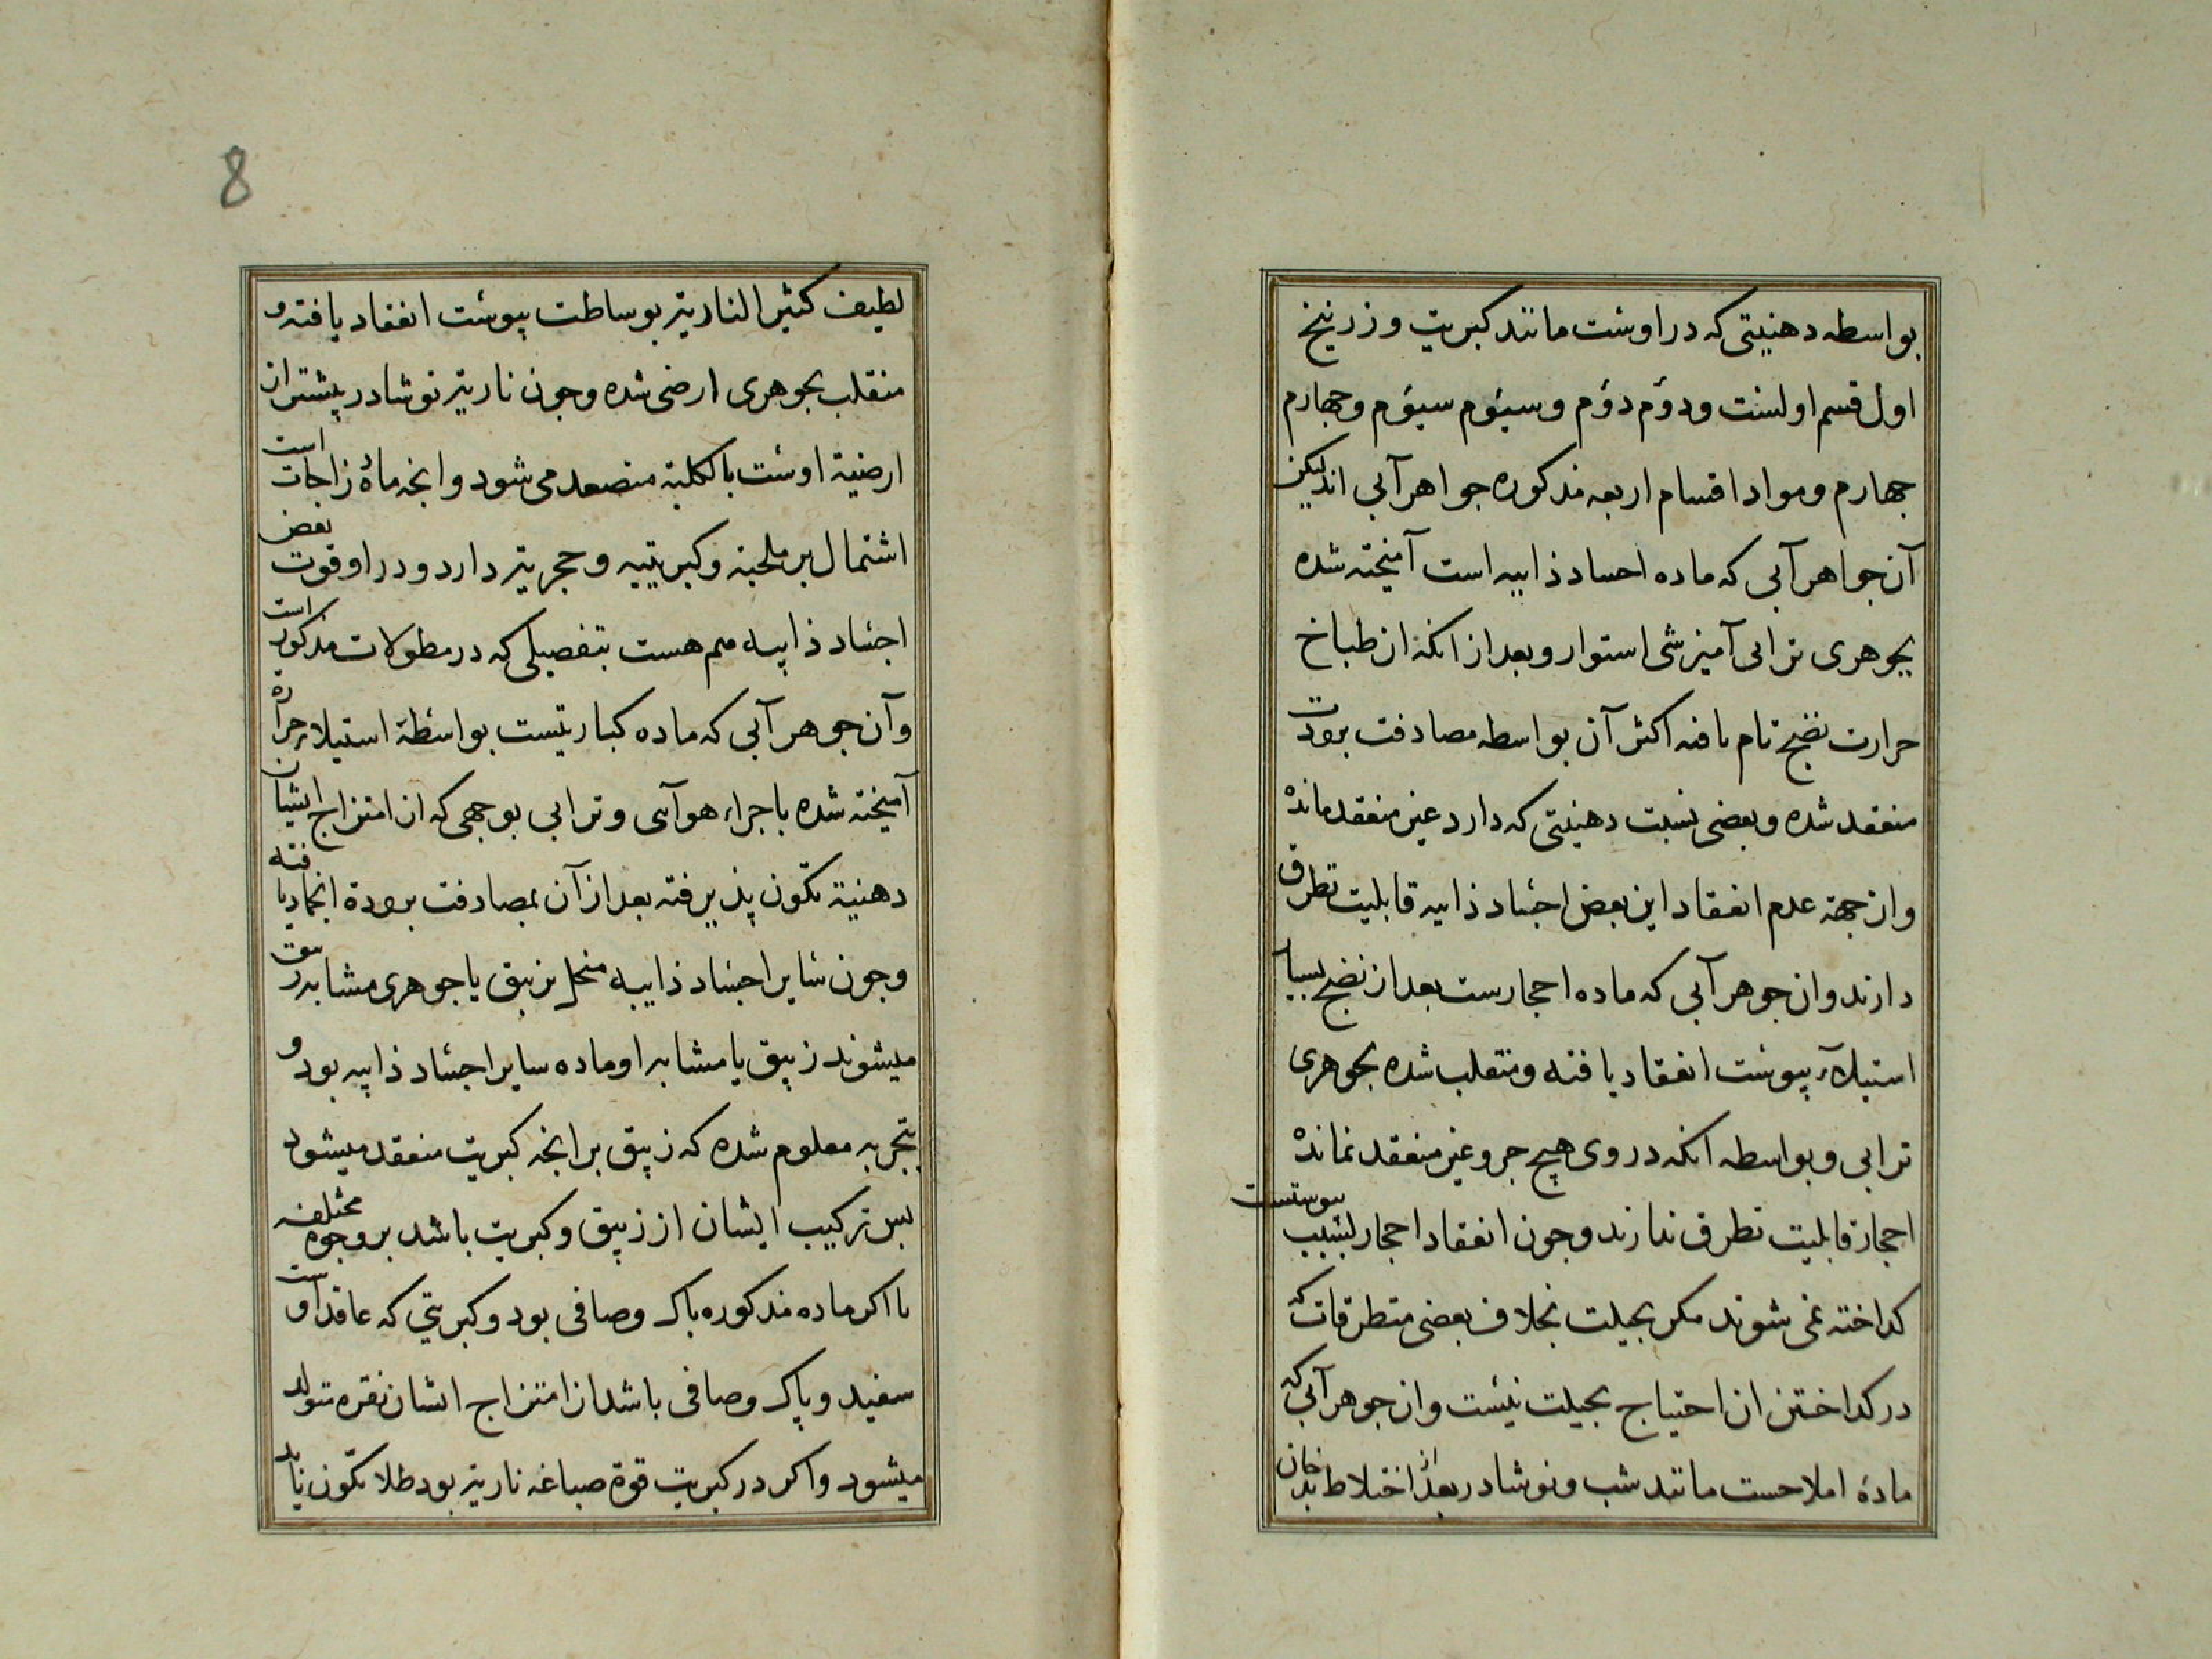 بواسطه دهنیتی که در اوست مانند کبریت و زرنیخ
اول قسم اولست ودوّم دوّم وسیوّم سیوّم وجهارم
جهارم ومواد اقسام اربعه مذکوره جواهر آبی اند لیکن
آن جواهر آبی که ماده اجساد ذایبه است آمیخته شده
بجوهری ترابی آمیزشی استوار وبعد از انکه از طباخ
حرارت نضج تام یافته اکثر آن بواسطه مصادفت برودت
منعقد شده وبعضی بسبب دهنیتی که دارد غیر منعقد مانده
واز جهة عدم انعقاد این بعض اجساد ذایبه قابلیت تطرق
دارند وان جوهر آبی که ماده احجارست بعد از نضج بسیار
استیلآء یبوست انعقاد یافته ومنقلب شده بجوهری
ترابی وبواسطه انکه در وی هیچ جزو غیر منعقد نمانده
احجار قابلیت تطرق ندارند وجون انعقاد احجار بسبب یبوستست
کداخته نمی شوند مکر بحیلت بخلاف بعضی متطرقات که
در کداختن ان احتیاج بحیلت نیست وان جوهر آبی که
مادهٔ املاحست مانند شب ونوشادر بعد از اختلاط بدخان
8
لطیف کثیر الناریة بوساطت یبوست انعقاد یافته و
منقلب بجوهری ارضی شده وجون ناریة نوشادر بیشتر از
ارضیة اوست بالکلیة متصعد می شود وانجه مادهٔ زاجات است
اشتمال بر ملحیة وکبریتیه وحجریة دارد ودر او قوت بعض
اجساد ذایبه هم هست بتفصیلی که در مطولات مذکور است
وآن جوهر آبی که ماده کباریتست بواسطهٔ استیلاء حرارة
آمیخته شده باجزاء هوآیی وترابی بوجهی که از امتزاج ایشان
دهنیة تکون پذیرفته بعد از آن بمصادفت برودة انجماد یافته
وجون سایر اجساد ذایبه منحل بزیبق یا جوهری مشابه زیبق
میشوند زیبق یا مشابه او ماده سایر اجساد ذایبه بود و
بتجربه معلوم شده که زیبق برایحه کبریت منعقد میشود
بس ترکیب ایشان از زیبق وکبریت باشد بر وجوه مختلفه
تا اکر ماده مذکوره باک وصافی بود وکبریتی که عاقد اوست
سفید وپاک وصافی باشد از امتزاج ایشان نقره متولد
میشود واکر در کبریت قوة صباغه ناریة بود طلا تکون یابد